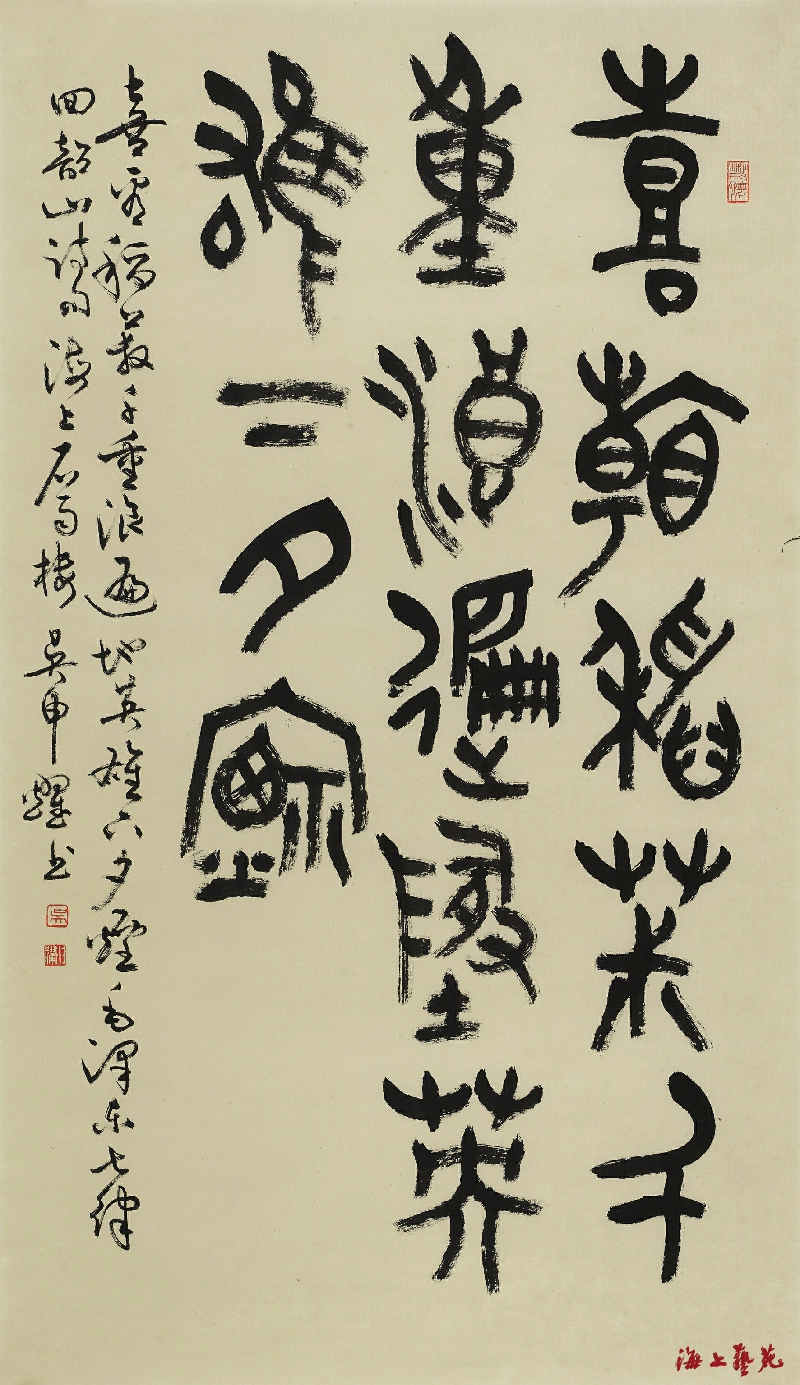 喜看稻菽千
重浪遍地英
雄下夕煙
喜看稻菽千重浪遍地英雄下夕煙毛澤东七律
回韶山詩句海上石樓吳申耀书
海上藝苑